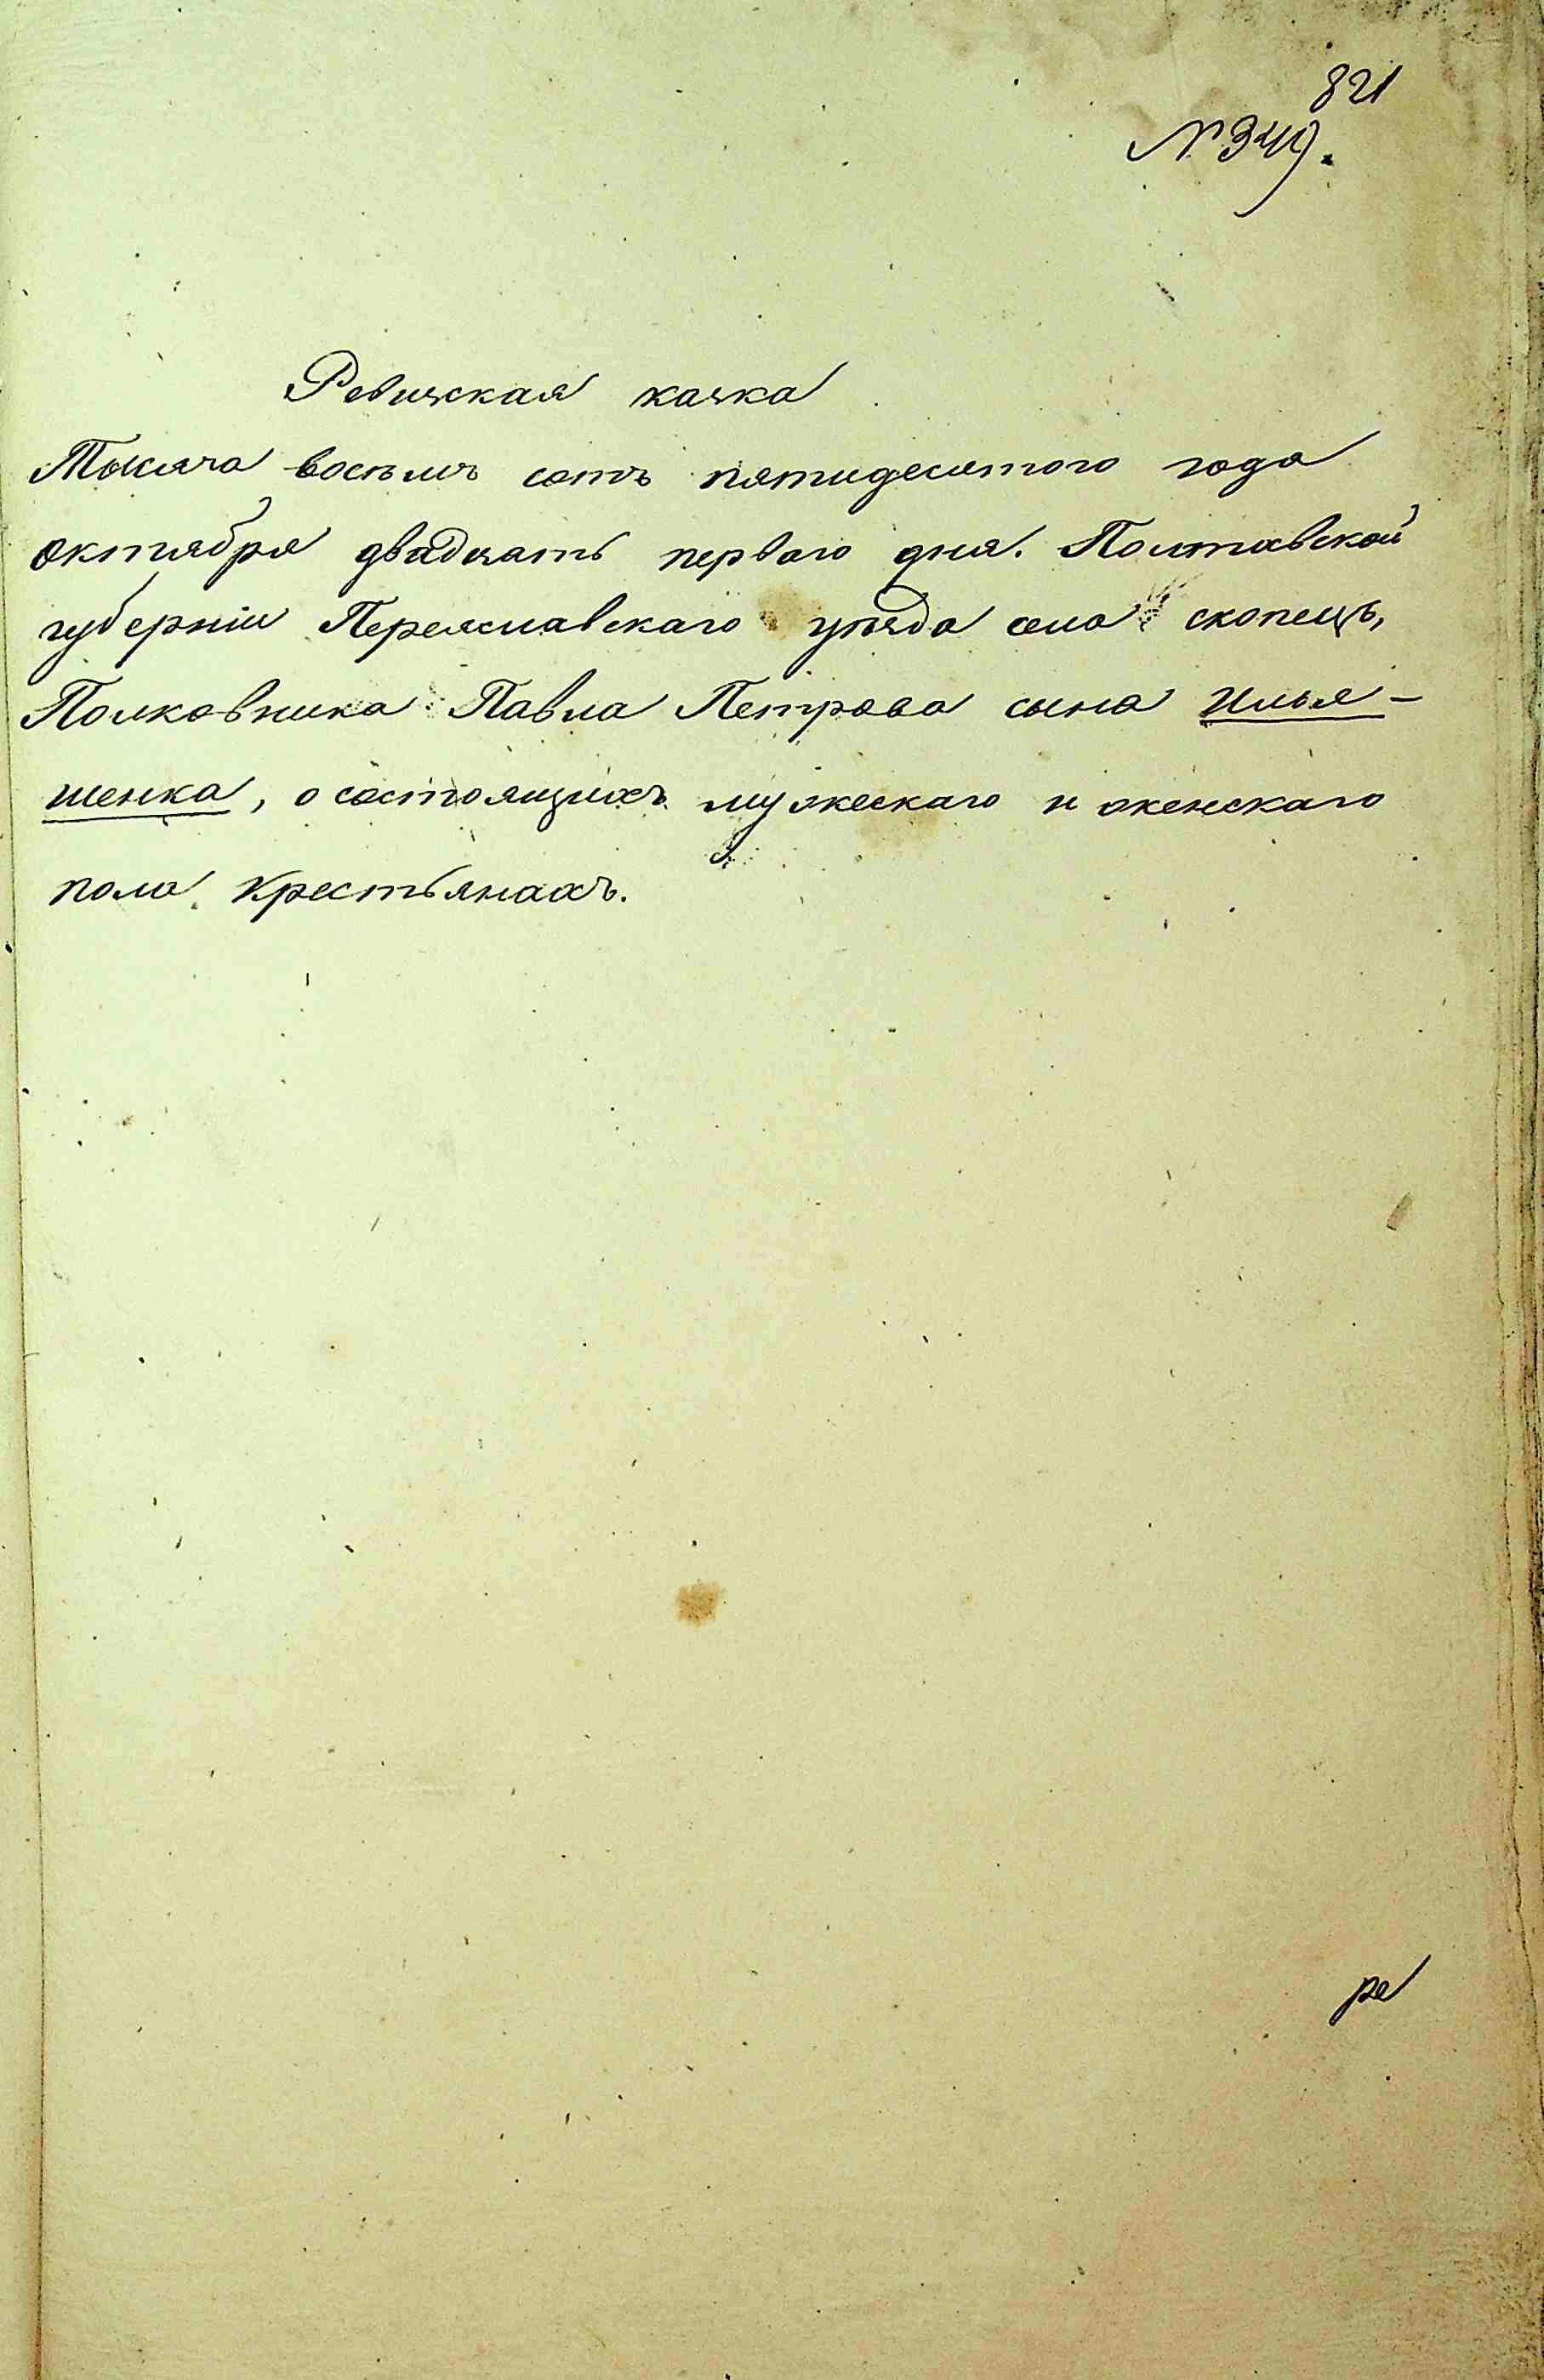 821
№ 349.
Ревизская казка
Тысяча восемь сотъ пятидесятого года
октября двадцать первого дня. Полтавской
губерніи Переяславскаго уѣзда села скопецъ,
Полковника Павла Петрова сына Илья-
шенка, о состоящихъ мужескаго и женскаго
пола крестьянахъ.
ре